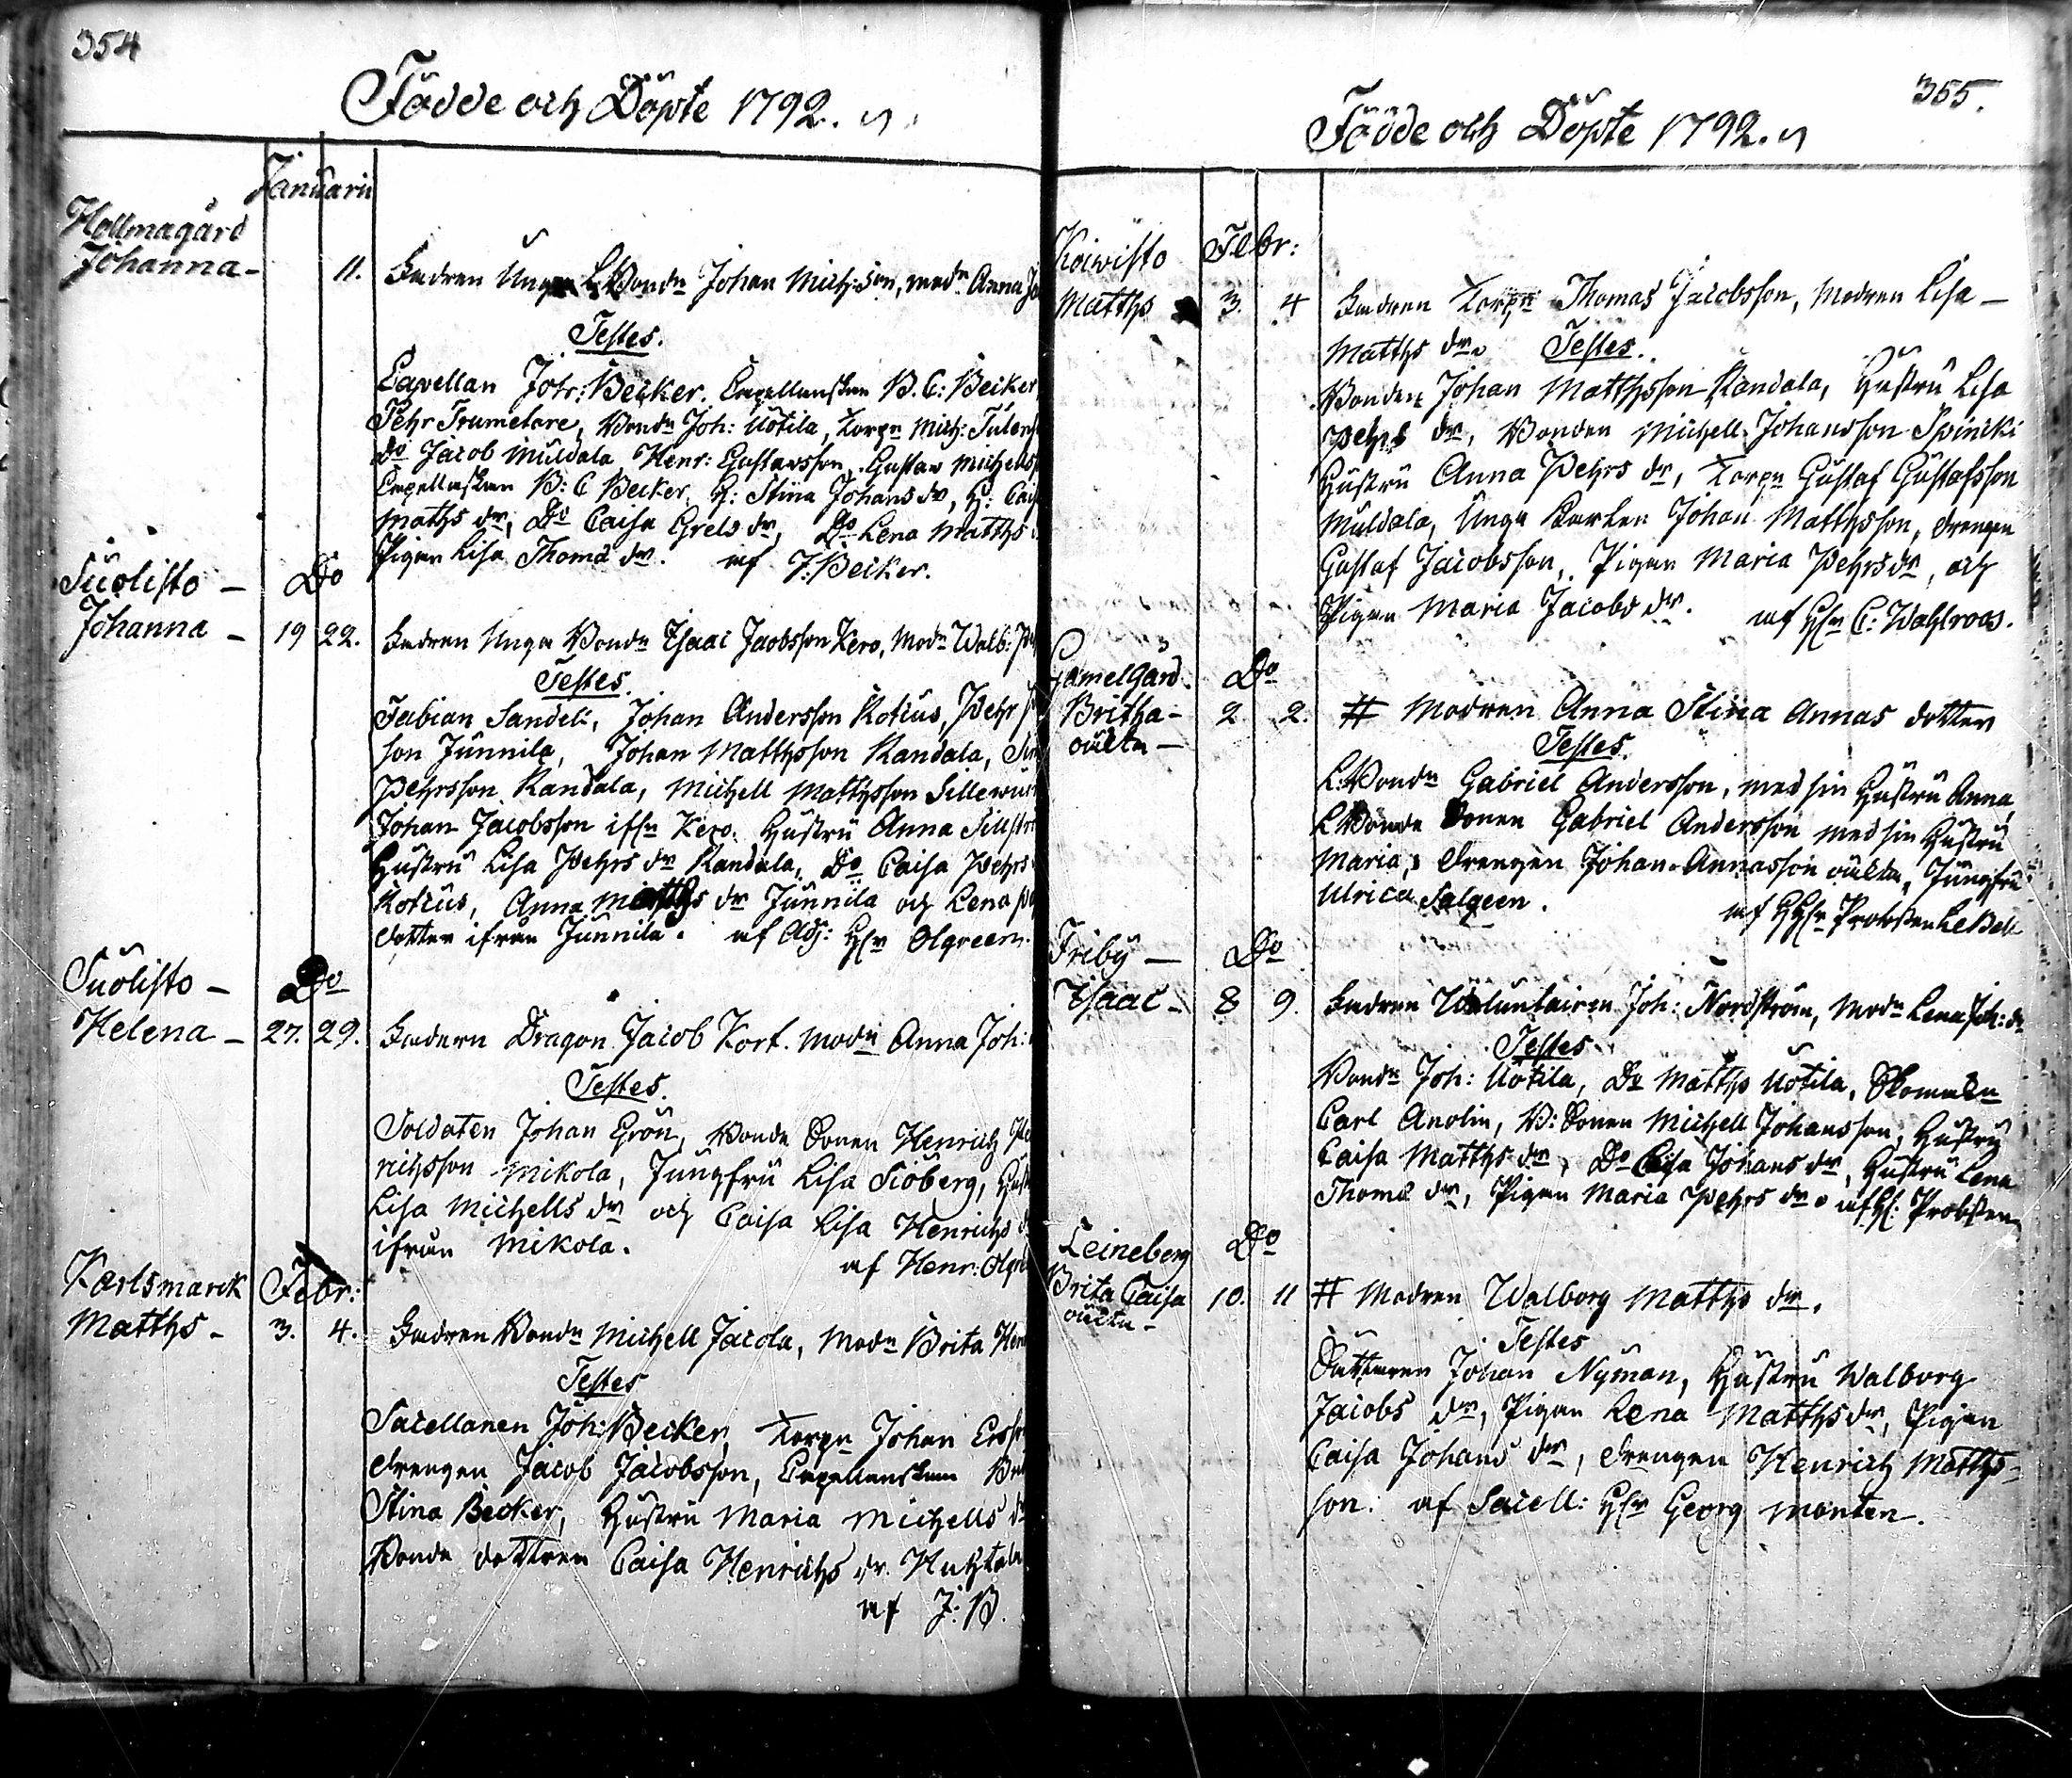 354
Födde och Döpte 1792.
Januarii
Hollmagård
Johanna - 11. Fadren Unga L: Bondn Johan Mich:son, modn Anna
Testes.
Capellan Joh: Becker. Capellanskan B. C: Becker
Pehr Trumetare, Bondn Joh: Uotila, Torpn Mich:
Do Jacob Muldala Henr: Gustavsson, Gustav Michells
Capellanskan B: C Becker, H: Stina Johans dr, H:
Matths dr, Do Caisa Grels dr, Do Lena Matths
Pigan Lisa Thomæ dr. af J: Becker.
Suolisto - Do
Johanna - 19 22. Fadren Unga Bondn Isaac Jacobsson Kero, Modn Walb:
Testes.
Fabian Sandell, Johan Andersson Kotius, Pehr
son Junnila, Johan Matthsson Kandala,
Pehrsson Kandala, Michell Matthsson
Johan Jacobsson ifrn Kero. Hustru Anna
Hustru Lisa Pehrs dr Kandala, Do Caisa Pehrs
Kotius, Anna Matths dr Junnila och Lena
dotter ifrån Junnila. af Adj: Hr Olgreen.
Suolisto - Do
Helena - 27. 29. Fadern Dragon Jacob Kort. Modn Anna Joh:
Testes.
Soldaten Johan Grön, Bonde Sonen Henrich
richsson Mikola, Jungfru Lisa Siöberg,
Lisa Michells dr och Caisa Lisa Henrichs
ifrån Mikola.
af Henr:
Karlsmarck Febr:
Matths - 3. 4. Fadren Bondn Michell Jacola, Modn Brita
Testes
Sacellanen Joh: Becker, Torpn Johan
drengen Jacob Jacobsson, Capellanskan
Stina Becker, Hustru Maria Michells dr
Bonde dottren Caisa Henrichs dr.
af J: B.
355.
Födde och Döpte 1792.
Koivisto Febr:
Matths 3. 4 Fadren Torpn Thomas Jacobsson, Modren Lisa -
Matths dr. Testes.
Bonden Johan Matthsson Kandala, Hustru Lisa
Pehrs dr, Bonden Michell Johansson
Hustru Anna Pehrs dr, Torpn Gustaf Gustafsson
Muldala, Unga Karlen Johan Matthsson, drengen
Gustaf Jacobsson, Pigan Maria Pehrs dr, och
Pigan Maria Jacobs dr. af Hr C: Wahlroos.
Gamelgård. Do
Britha - 2 2. # Modren Anna Stina Annas dotter
oächta - Testes.
L: Bondn Gabriel Andersson, med sin Hustru Anna,
L: Bonde Sonen Gabriel Andersson med sin Hustru
Maria, drengen Johan Annasson oächta, Jungfru
Ulrica Salgeen. af Probsten LeBell
Friby - Do
Isaac - 8 9. Fadren Woluntairen Joh: Nordström, Modn Lena Joh: dr
Testes
Bondn Joh: Uotila, Do Matths Uotila,
Carl Anolin, B: Sonen Michell Johansson, Hustru
Caisa Matths dr, Do Caisa Johans dr, Hustru Lena
Thomæ dr, Pigan Maria Pehrs dr. af H: Probsten
Leineberg Do
Brita Caisa 10. 11 # Modren Walborg Matths dr.
oächta - Testes
Johan Nyman, Hustru Walborg
Jacobs dr, Pigan Lena Matths dr, Pigan
Caisa Johans dr, drengen Henrich Matths-
son. af Sacell: Hr Georg Monten.